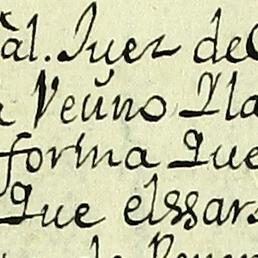 àl. Juez de
Veuno Yla
forma Que
Que elssars